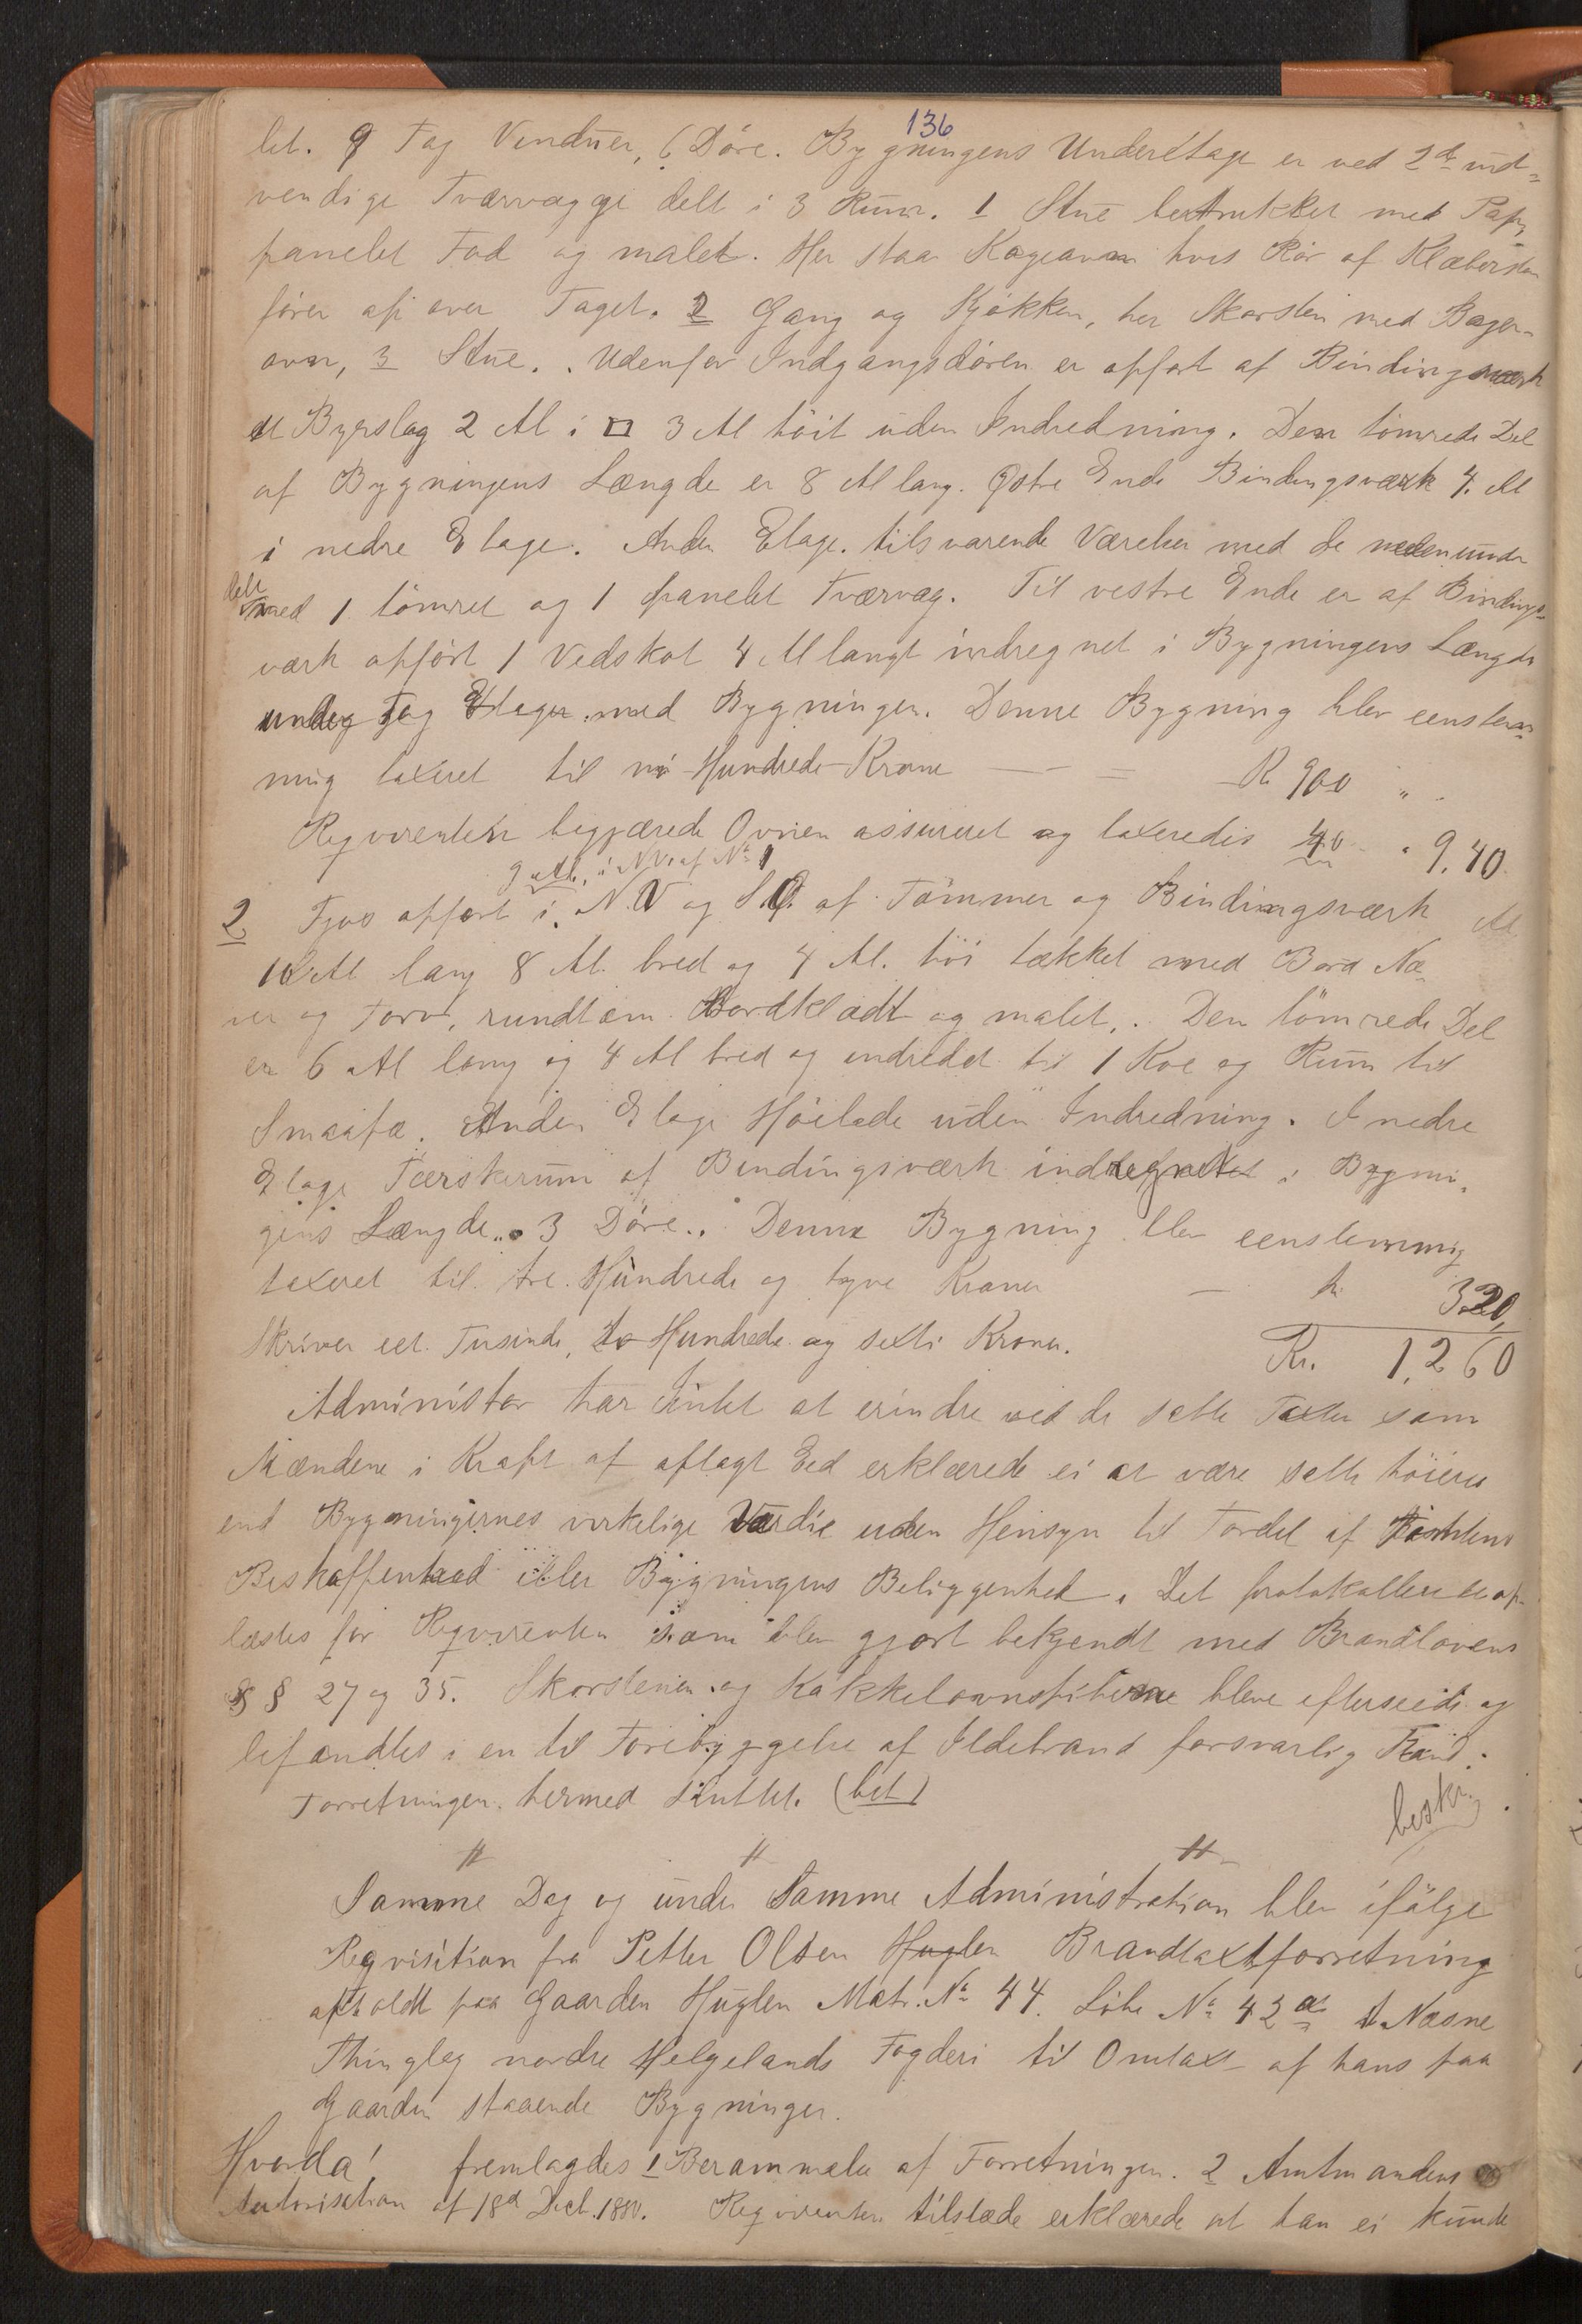 136
let. 9 Fag Vinduer, 6 Döre. Bygningens Underétage er ved 2de ind-
vendige Tværvægge delt i 3 Rum. 1 Stue bertrukket med Pap,
panelet Tad og malet. Her staa Kogeovn hvis Rör af Klæbersten
förer op over Taget. 2 Gang og Kjökken, her Skorsten med Bager-
ovn, 3 Stue. Udenfor Indgangsdören er opfört af Bindingsværk
et Byrslag 2 Al i □ 3 Al höit uden Indredning. Den tömrede Del
af Bygningens Længde er 8 Al lang. Østre Ende Bindingsværk 4. Al
i nedre Etage. Anden Etage. tilsvarende Værelser med de nedenunder
delt med 1 tömret og 1 panelet Tværvæg. Til vestre Ende er af Bindings-
værk opfört 1 Vedskot 4 Al langt indregnet i Bygningens Længde
under Tag Etager med Bygningen. Denne Bygning blev eenstem-
mig taxeret til ni Hundrede Krone — — = R 900 " .
Reqvirenten begjærede Ovnen assureret og taxeredes 40 " 9,40.
9 Al. i NV. af No 1
2 Fjøs opfört i N.V og S.O. af Tömmer og Bindingsværk
10 Al lang 8 Al. bred og 4 Al. höi tækket med Bord Næ-
ver og Torv, rundtom Bordklædt og malet. Den tömrede Del
er 6 Al lang og 4 Al bred og indredet til 1 Koe og Rum til
Smaafæ. Anden Etage Höelade uden Indredning. I nedre
Etage Tærskerum af Bindingsværk indregnet i Bygnin-
gens Længde. 3 Döre. Denne Bygning blev eenstemmig
taxeret til tre Hundrede og tyve Kroner — kr 320,
Skriver eet Tusinde, to Hundrede og sexti Kroner. Kr. 1,260
Administor har Intet at erindre ved de satte Taxter som
Mændene i Kraft af aflagt Eed erklærede ei at være satte höiere
end Bygningernes virkelige Værdie uden Hensyn til Fordel af Tomtens
Beskaffenhed eller Bygningens Beliggenhed. Det protokollerede op-
læstes for Reqvirenten som blev gjort bekjendt med Brandlovens
§ § 27 og 35. Skorstenen og Kakkelovnspiberne bleve efterseede og
befandtes i en til Forebyggelse af Ildebrand forsvarlig Stand.
Forretningen hermed sluttet. (bet) beskr.
" " "
Samme Dag og under Samme Administration blev ifölge
Reqvisition fra Petter Olsen Huglen Brandtaxtforretning
afholdt paa Gaarden Huglen Matr. No 44. Löbe No 42a i Næsne
Thinglag nordre Helgelands Fogderi til Omtaxt af hans paa
Gaarden staaende Bygninger.
Hvorda! fremlagdes 1 Berammelse af Forretningen. 2 Amtmandens
Autorisation af 18d Dect. 1880. Reqvirenten tilstæde erklærede at han ei kunde